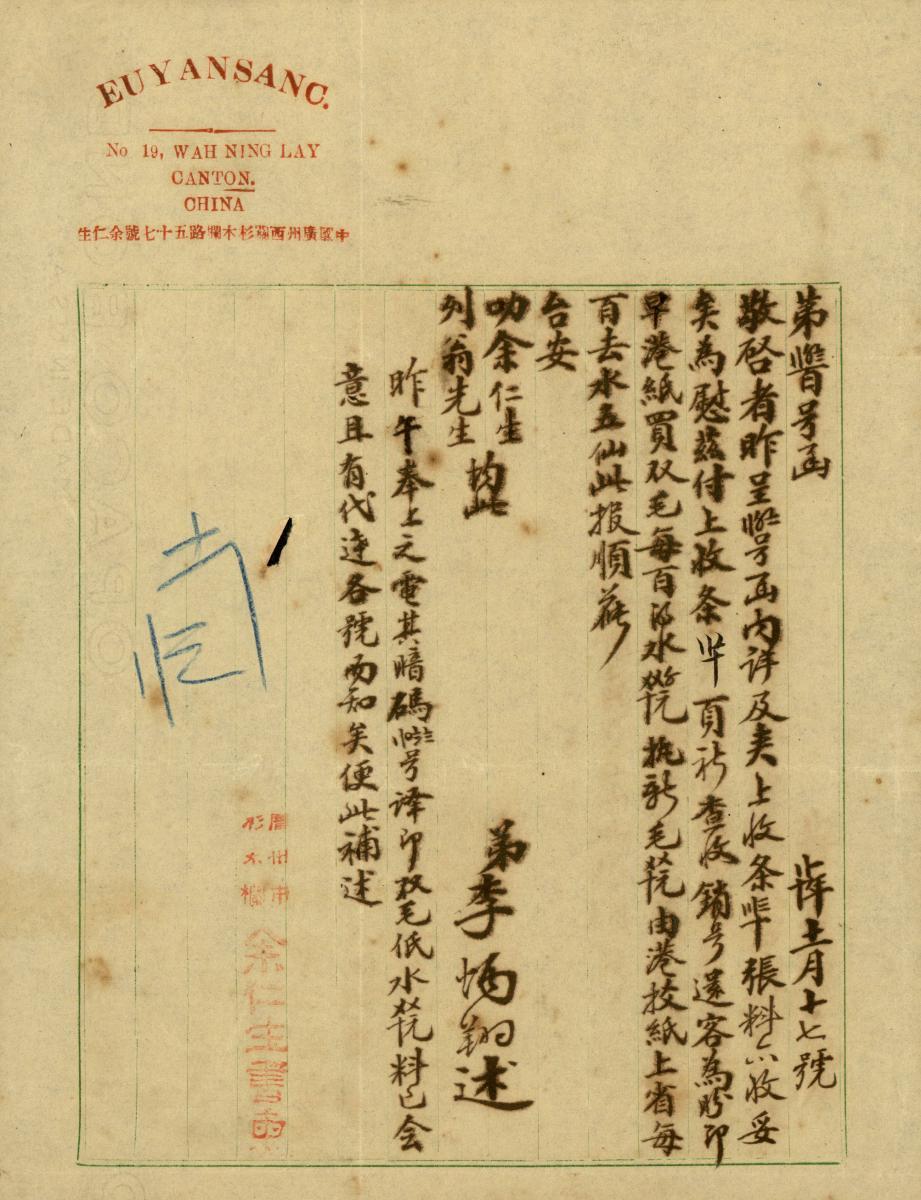 EUYANSANG.
No 19, WAH NING LAY
CANTON.
CHINA
中國廣州西關杉木欄路五十七號余仁生
第 号函
十二月十七號
敬啓者昨呈 号函内詳及夹上收条 張料亦收妥
矣為慰茲付上收条 頁祈查收銷号還客為盼即
早港紙買双毛每百 水 批新毛 由港挍紙上省每
百去水五仙此报順
台安
叻余仁生
列翁先生 均此
弟李炳翔述
昨午奉上之電其暗碼 号译即双毛低水 料已会
意且有代達各號而知矣便此補述
廣州市
杉木欄
余仁生書柬